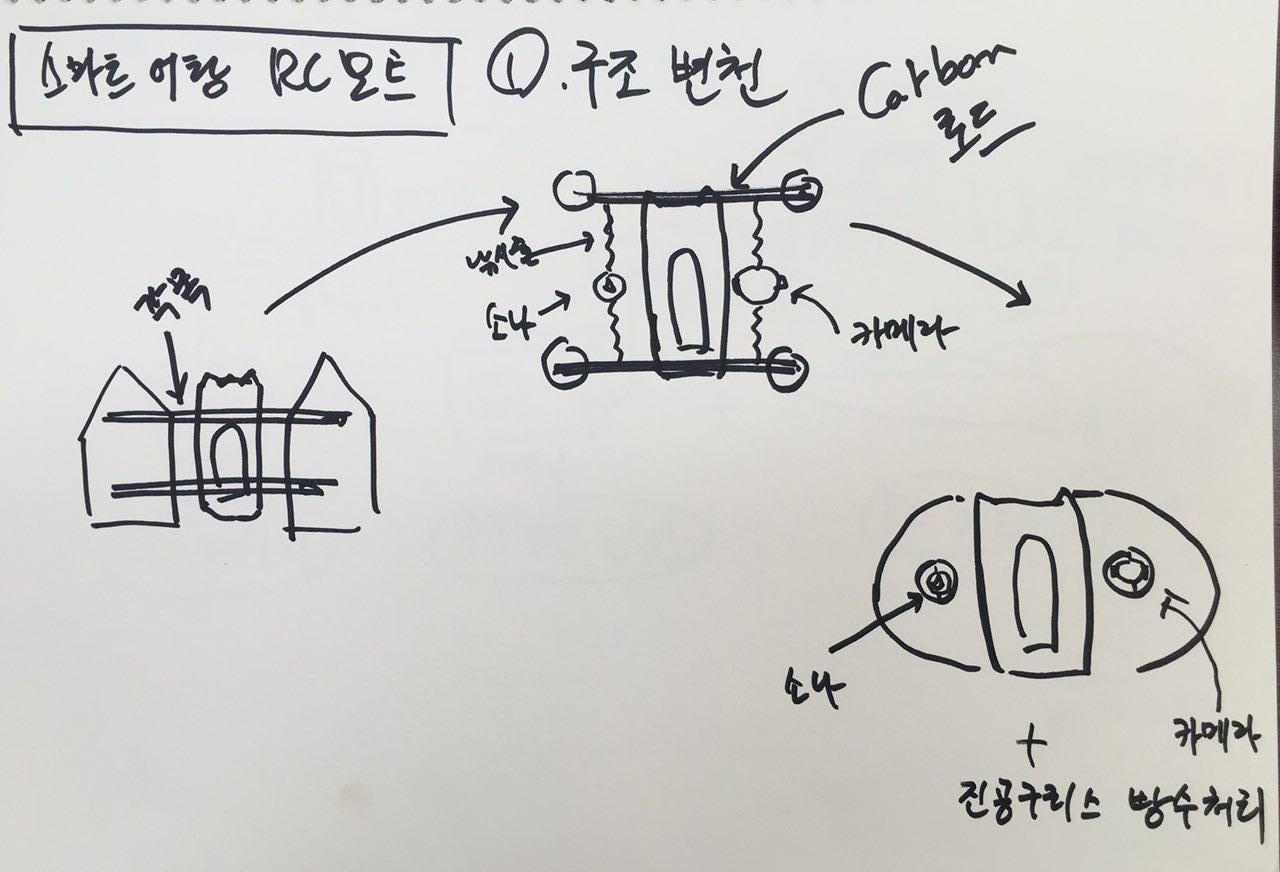 스마트 어탐 RC보트
①. 구조 변천
Carbon
로드
각목
낚시줄
소나
카메라
소나
카메라
+
진공구리스 방수처리